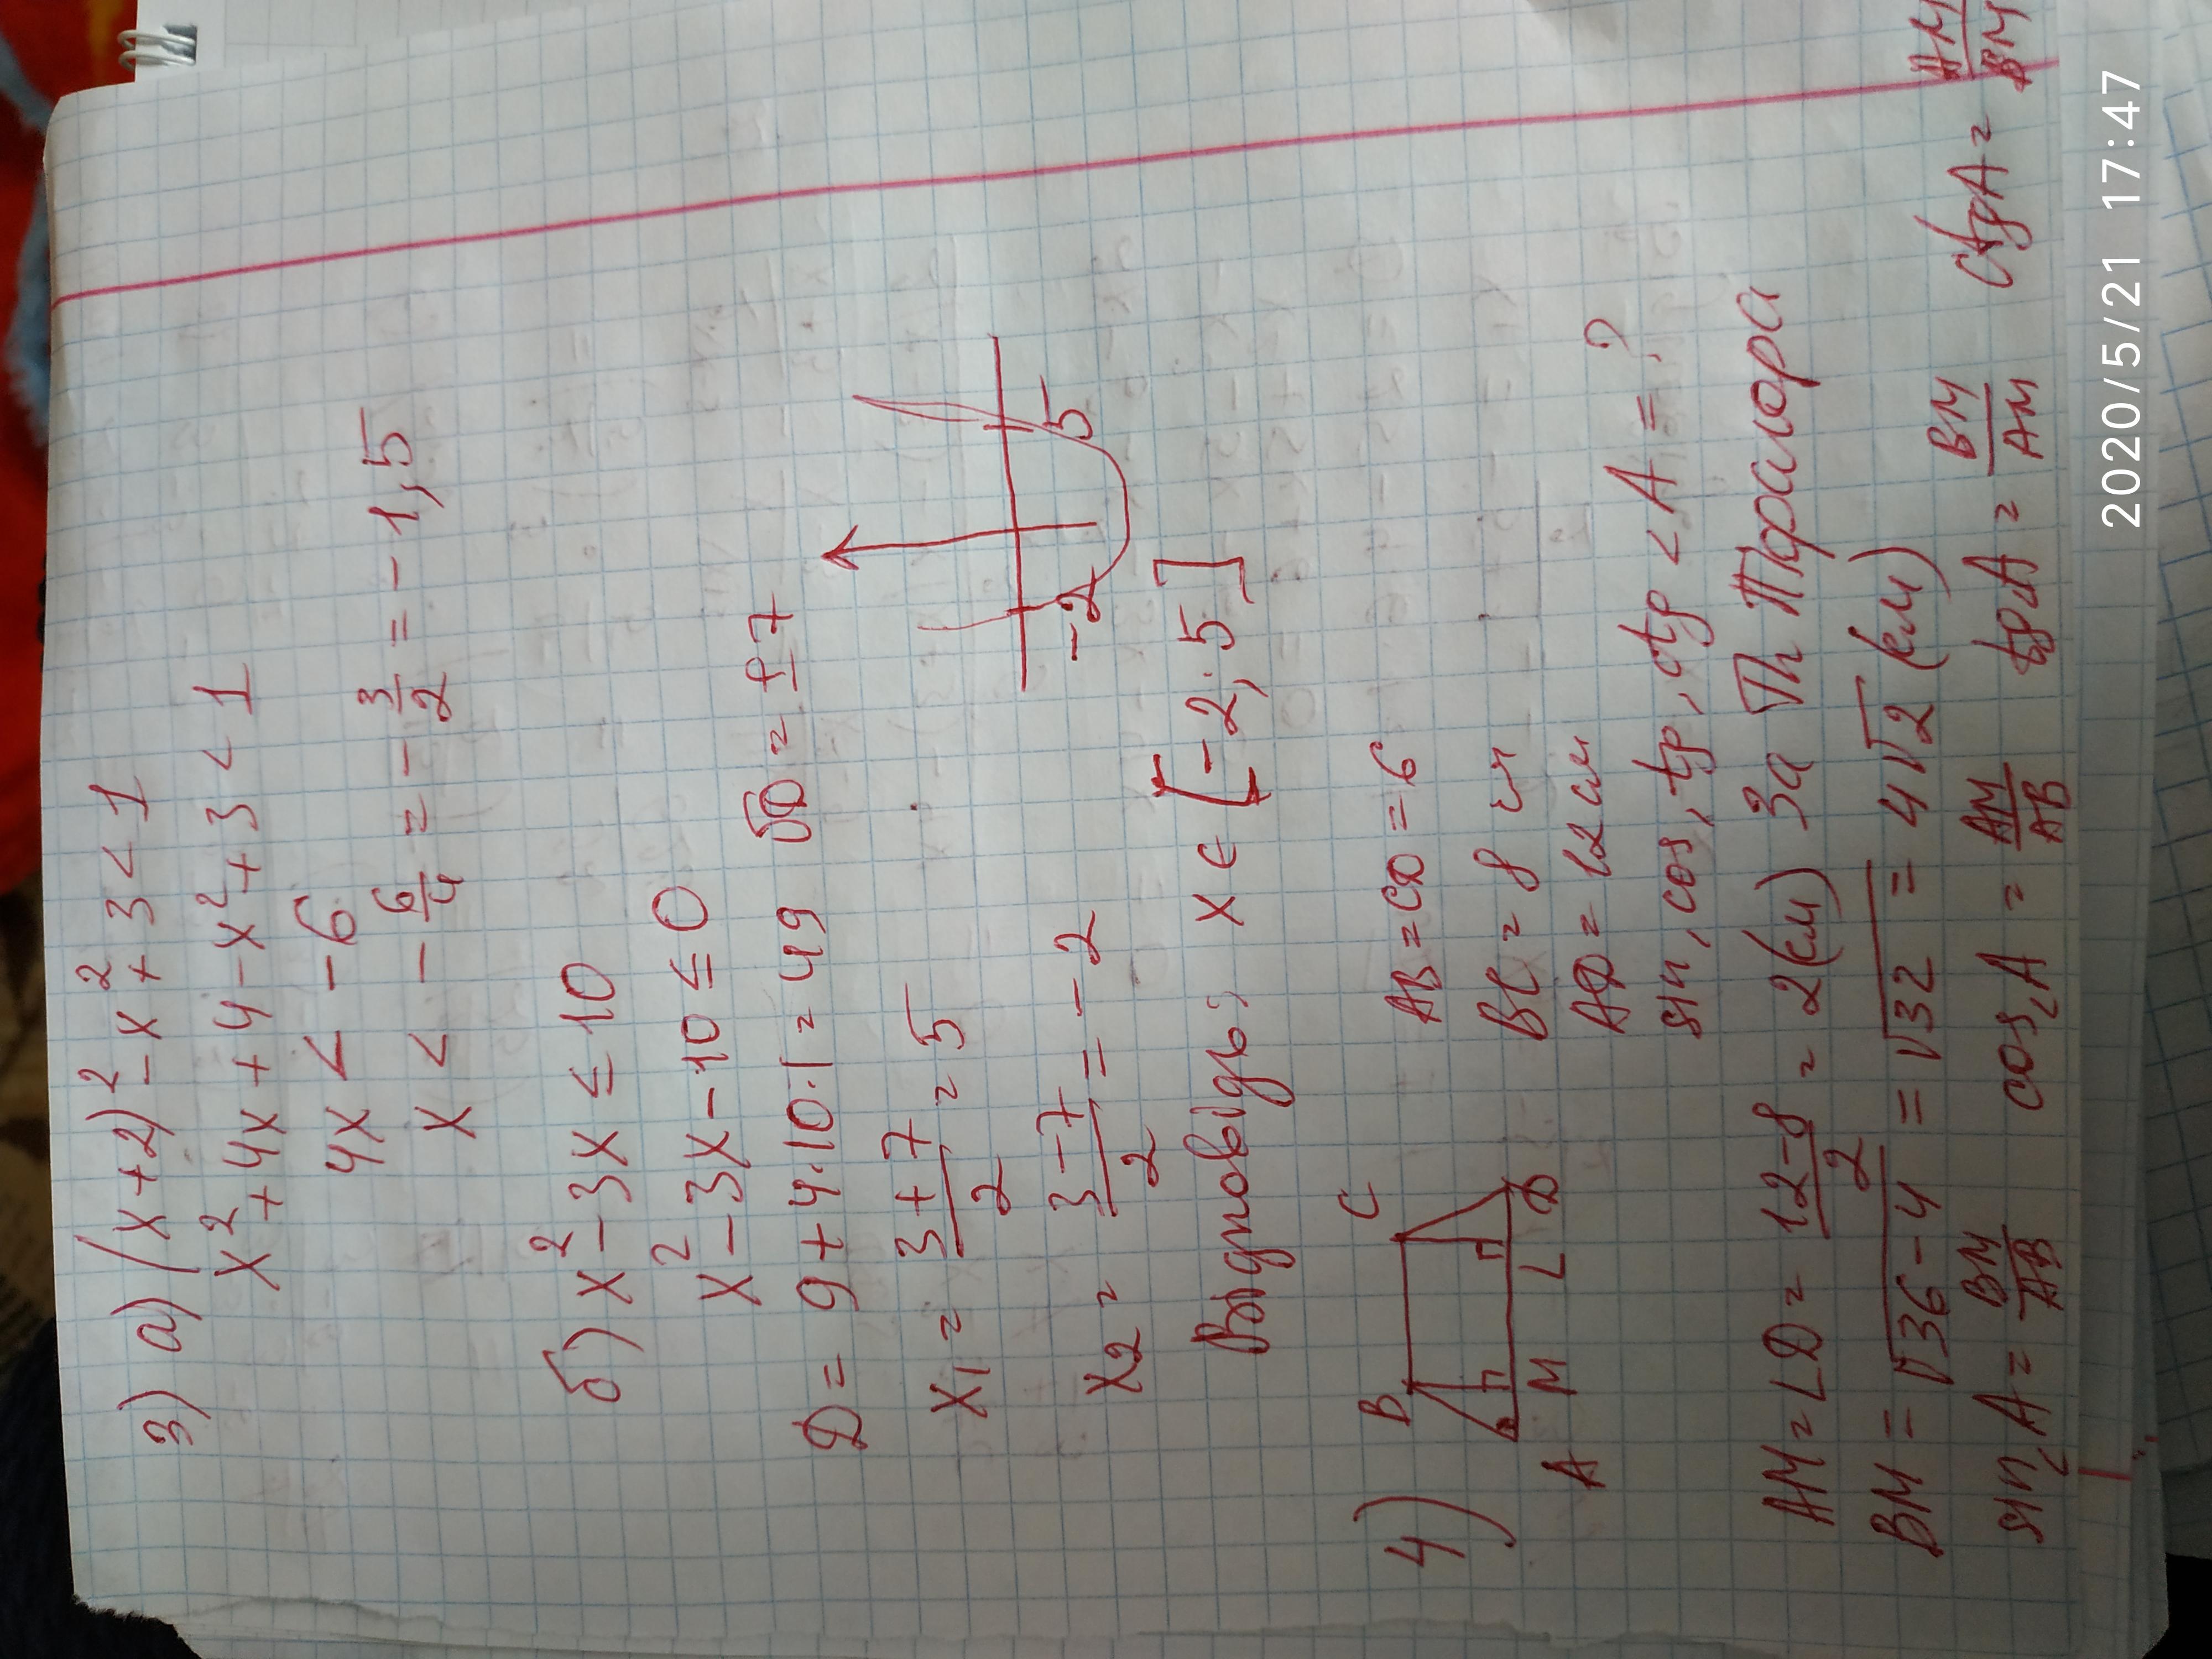 3) а) (x+2)² - x² + 3 < 1
x² + 4x + 4 - x² + 3 < 1
4x < -6
x < -6/4 = -3/2 = -1,5
б) x² - 3x ≤ 10
x² - 3x - 10 ≤ 0
D = 9 + 4·10·1 = 49 √D = ±7
x₁ = (3+7)/2 = 5
x₂ = (3-7)/2 = -2
-2 5
Відповідь: x ∈ [-2; 5]
4)
B C
A M L D
AB = CD = 6
BC = 8 см
AD = 12 см
sin, cos, tg, ctg < A = ?
AM = LD = (12-8)/2 = 2 (см) За Th Піфагора
BM = √36-4 = √32 = 4√2 (см)
sin∠A = BM/AB cos∠A = AM/AB tgA = BM/AM ctgA = AM/BM
2020/5/21 17:47